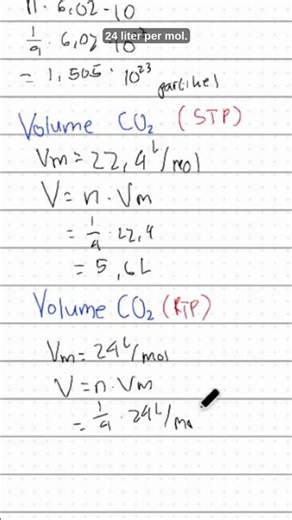 n · 6,02 · 10
24 liter per mol.
1/4 · 6,02 · 10²³
= 1,505 · 10²³ partikel
Volume CO₂ (STP)
Vm = 22,4 L/mol
V = n · Vm
= 1/4 · 22,4
= 5,6 L
Volume CO₂ (RTP)
Vm = 24 L/mol
V = n · Vm
= 1/4 · 24 L/mo